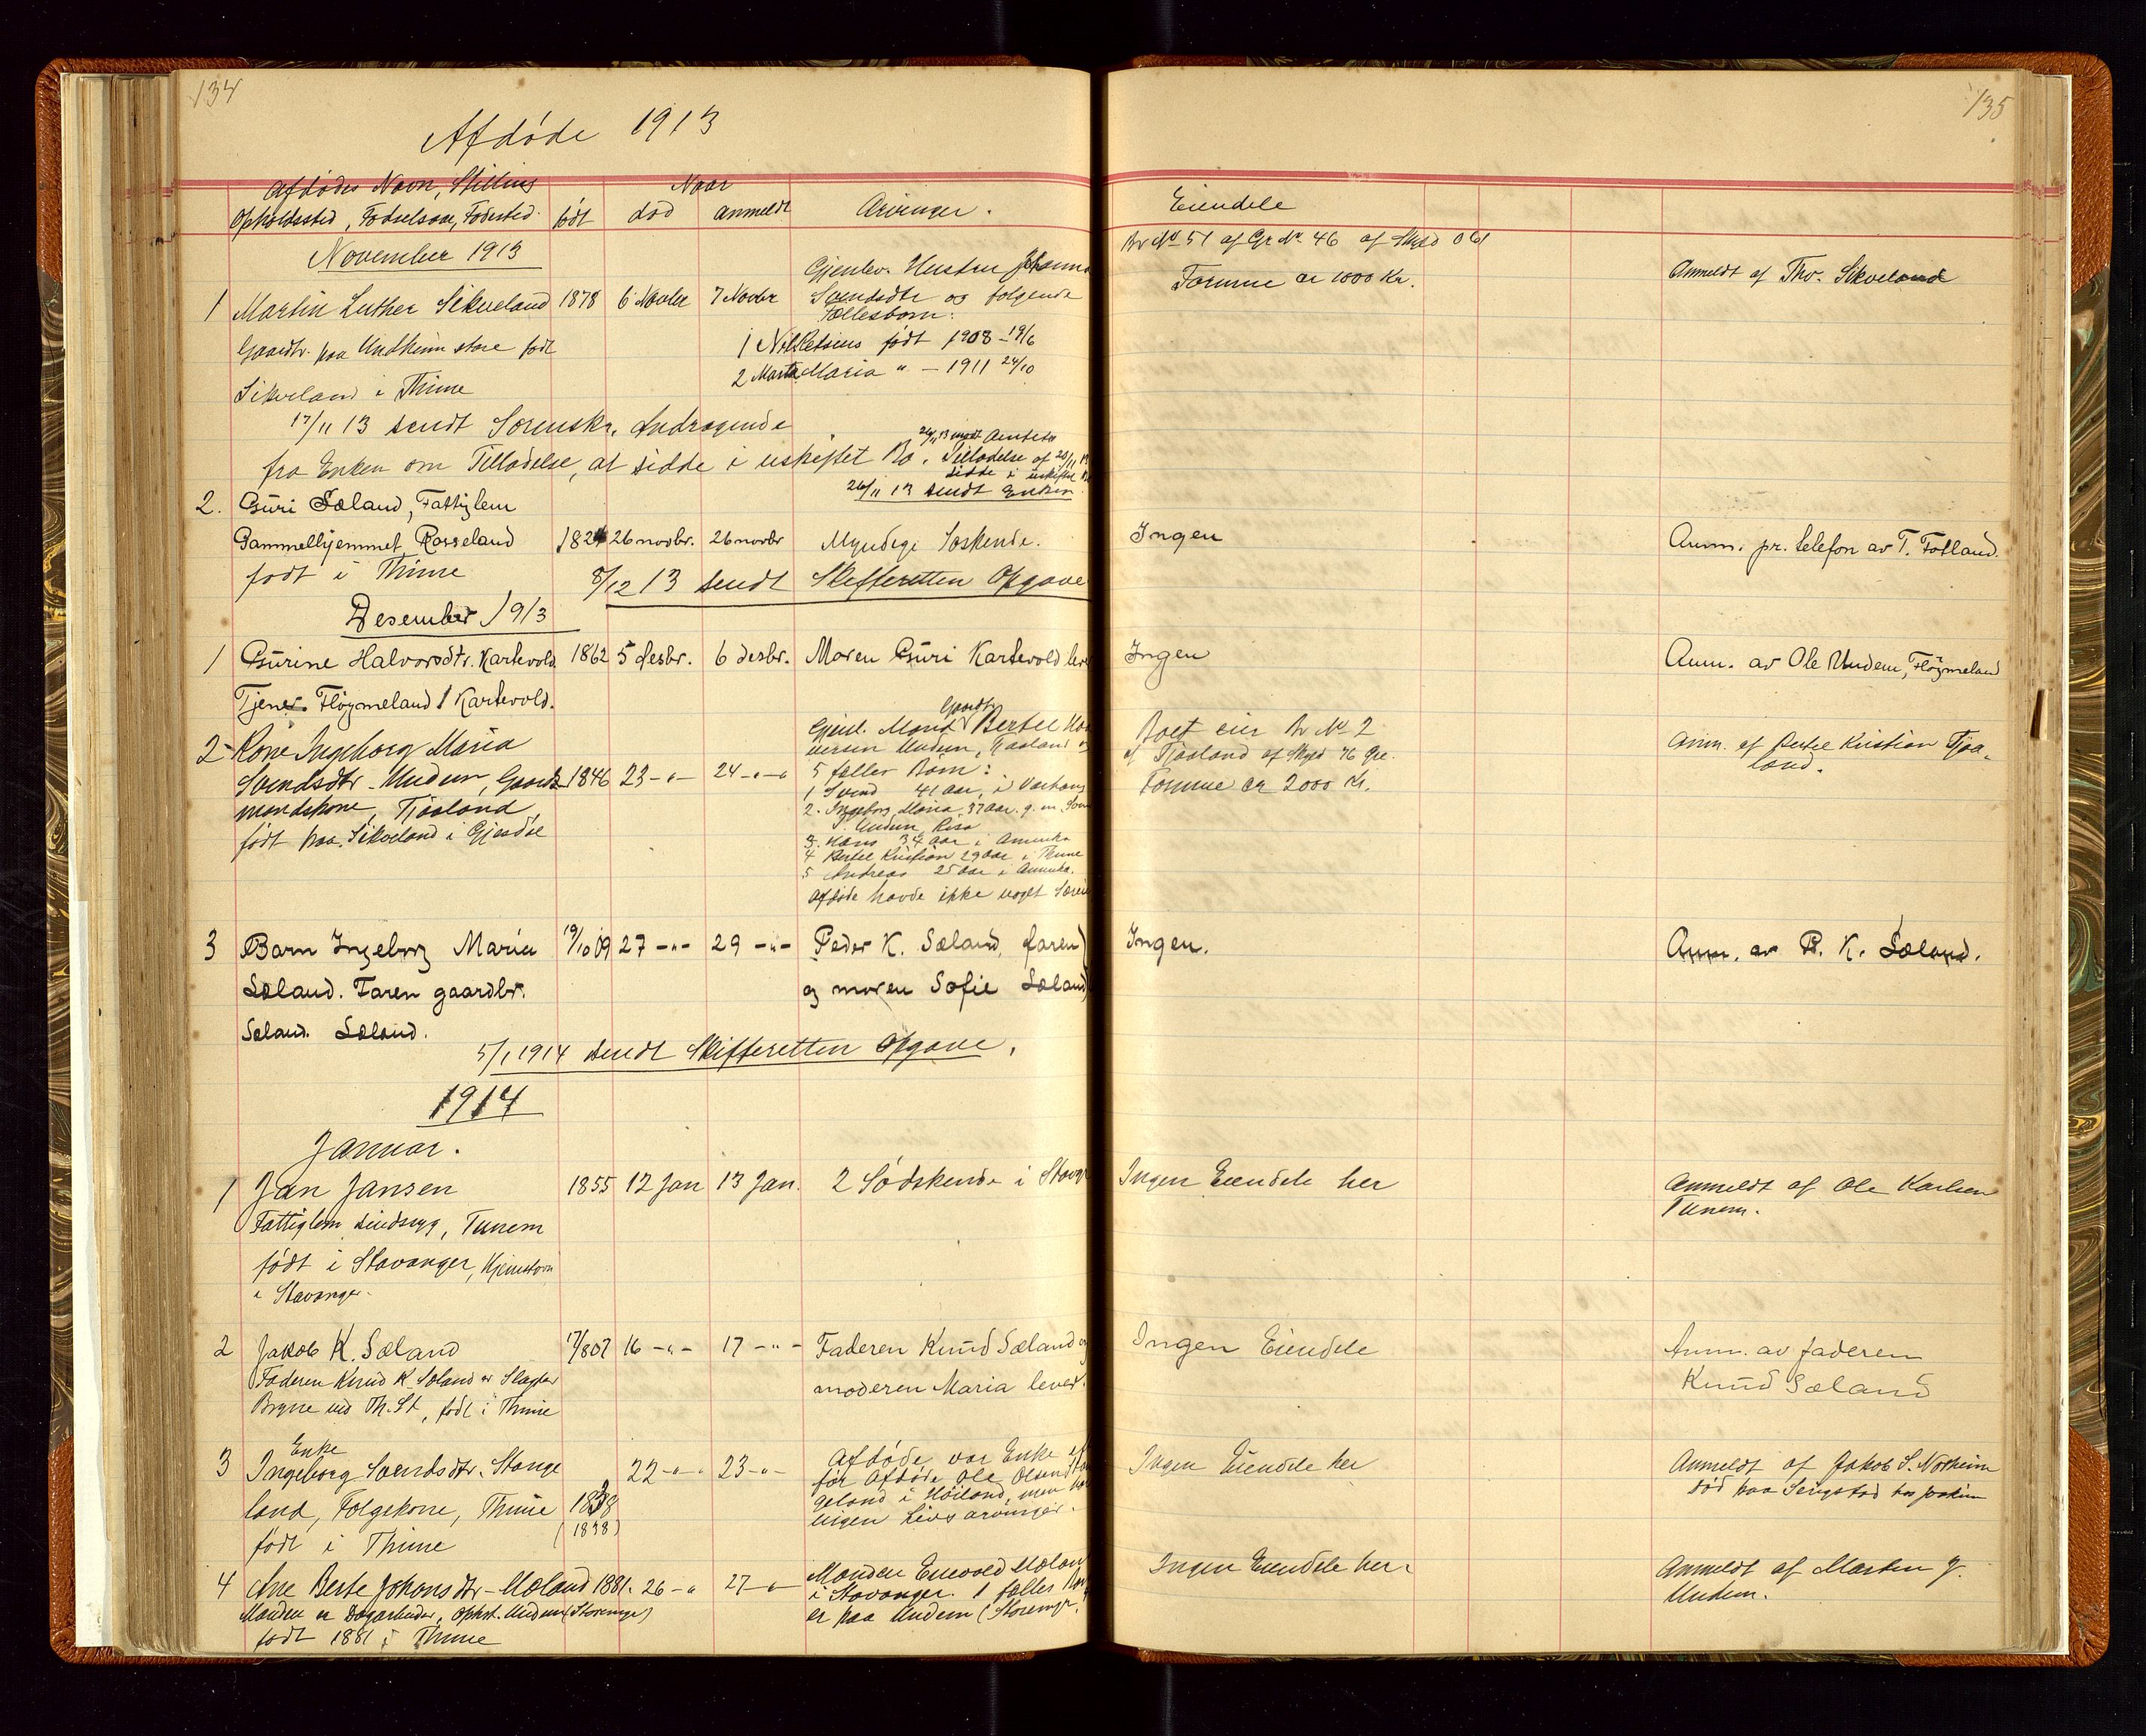 134
Afdøde 1913
Afdødes Navn, Stilling
Opholdssted, Fødselsaar, Fødested.
født
Naar
død
anmeldt
Arvinger.
November 1913
1 Martin Luther Sikveland 1878 6 Novbr 7 Novbr
Gaardbr. paa Undheim store født
Sikveland i Thime
Gjenlev. Hustru Johanna
Svendsdtr og følgende
Fællesbørn:
1 Nils Petsius født 1908 - 19/6
2 Marta Maria " - 1911 24/10
17/11 13 sendt Sorenskr. Andragende
fra Enken om Tilladelse, at sidde i uskiftet Bo.
Tilladelse af 20/11 13
sidde i uskiftet Bo
26/11 13 sendt Enken.
2. Guri Sæland, Fattiglem
Gammelhjemmet Rosseland 1824 26 novbr. 26 novbr Myndige Søskende.
født i Thime
8/12 13 sendt Skifteretten Opgave
Desember 1913
1 Gurine Halvorsdtr. Kartevold 1862 5 desbr. 6 desbr. Moren Guri Kartevold lever
Tjener. Fløymeland / Kartevold.
2 Kone Ingeborg Maria
Svendsdtr. Undem, Gaard- 1846 23 -"- 24 -"-
mandskone, Tjåland
født paa Sikveland i Gjesdal
Gaardbr.
Gjenl. Mand Bertel
Undem,
5 fælles Børn:
1 Svend 41 Aar, i Varhaug
2. Ingeborg Maria 37 Aar. g. m.
Undem
3. Hans 34 Aar i Amerika
4 Bertel Kristian 29 Aar i Thime
5 Andreas 25 Aar i Amerika.
Afdøde havde ikke noget Særeie
3 Barn Ingeborg Maria 19/10 09 27 -"- 29 -"- Peder K. Sæland, faren)
Sæland. Faren gaardbr. og moren Sofie Sæland)
Sæland. Sæland.
5/1 1914 sendt Skifteretten Opgave.
1914
Januar.
1 Jan Jansen 1855 12 Jan 13 Jan. 2 Södskende i Stavgr
Fattiglem sindssyg, Tunem
født i Stavanger, Hjemstavn
i Stavanger.
2 Jakob K. Sæland 17/8 07 16 -"- 17 -"- Faderen Knud Sæland og
Faderen Knud K. Sæland er Slagter moderen Maria lever.
Bryne ved Th. St, født i Thime
Enke
3 Ingeborg Svendsdtr. Stange 22 -"- 23 -"-
land, Folgekone, Thime 1838
født i Thime (1838)
Afdøde var Enke ef
før Afdøde Ole Olsen Stan
geland i Høiland, men har
ingen Livsarvinger.
4 Ane Berte Johansdtr - Mæland 1881. 26 -" 27 -"-
Manden er Dagarbeider, Ophst. Undem (Storenge)
født 1881 i Thime
Manden Enevold Mæland
i Stavanger. 1 fælles Barn
er paa Undem (Storengr.
135
Eiendele
Br No 51 af Gr No. 46 af Skyld 061
Formue ca 1000 Kr.
Anmeldt af Tho. Sikveland
Ingen
Anm. pr. telefon av T. Fotland.
Ingen
Anm. av Ole Undem, Fløymeland
Boet eier Br No 2
af Tjåland af Skyld 76 Øre.
Formue ca 2000 Kr.
Anm. af Bertel Kristian Tjaa-
land.
Ingen.
Anm. av P. K. Sæland.
Ingen Eiendele her
Anmeldt af Ole Karlsen
Tunem.
Ingen Eiendele
Anm. av faderen
Knud Sæland
Ingen Eiendele her
Anmeldt af Jakob S. Norheim
død paa Serigstad hos Joakim
Ingen Eiendele her.
Anmeldt af Marten J.
Undem.